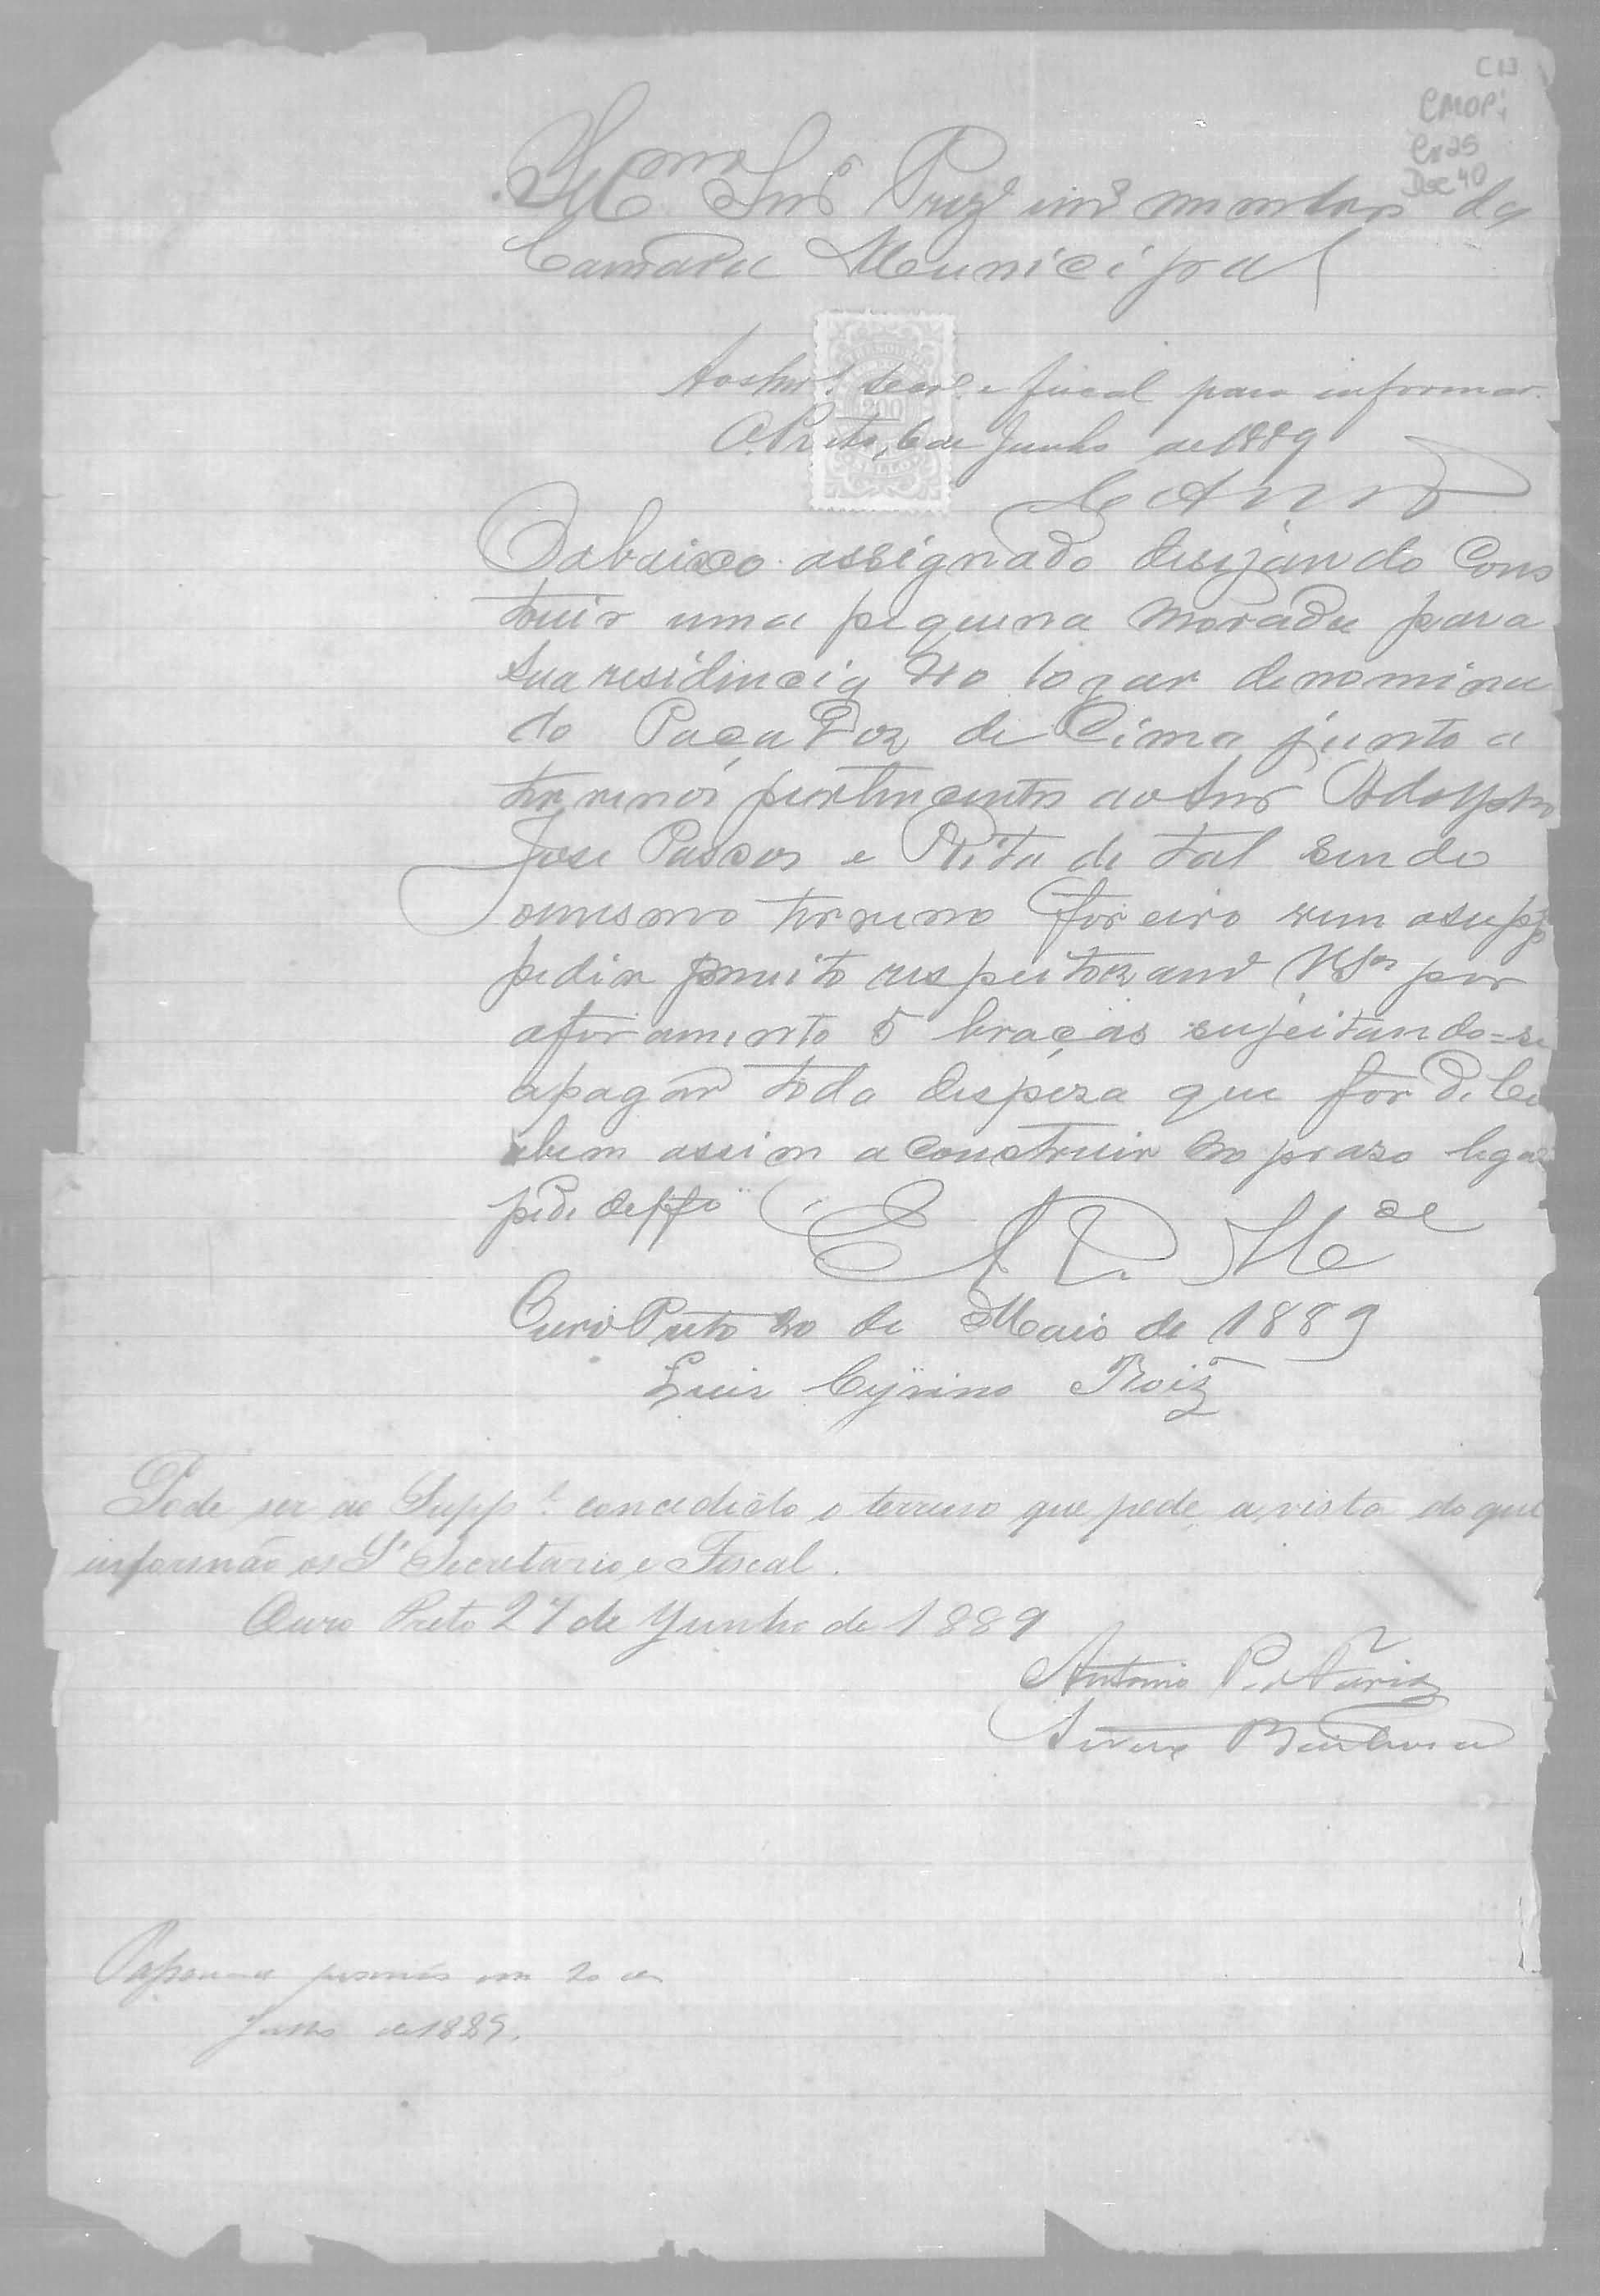 C13
CMOP
Cx25
Doc 40
Illmo Snr Prezde e mais membros da
Camara Municipal
Aos Snrs Secro e fiscal para informar.
O. Preto, 6 de Junho de 1889
THESOURO
200
SELLO
O abaixo assignado desejando Cons
truir uma piquena morada para
sua residincia no logar denomina
do Paça Dez de Cima junto a
terrenos pertincentes ao Snr Adolpho
Jose Passos e Rita de tal sendo
o mesmo terreno foreiro vem o supp
pedir muito respeitozamte VSas por
aforamento 5 braças sujeitando=se
a pagar toda despeza que for de Lei
e bem assim a construir no prazo legal
pede deffo
E. R. Mce
Ouro Preto 20 de Maio de 1889
Luis Cyrino Roiz
Pode ser ao Suppe concedido o terreno que pede, a vista do que
informão os Srs Secretario e Fiscal.
Ouro Preto 27 de Junho de 1889
Antonio P.
em 20 de
Julho de 1889.